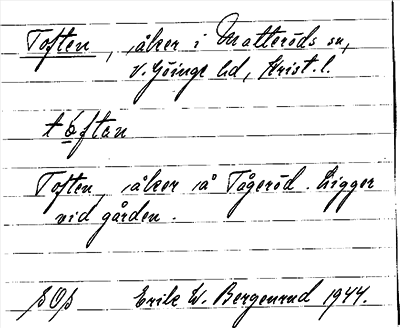 Toften, åker i Matteröds sn,
V. Göinge hd, Krist. l.
tòftan
Toften, åker å Tågeröd. Ligger
vid gården.
Erik W. Bergenrud 1944.